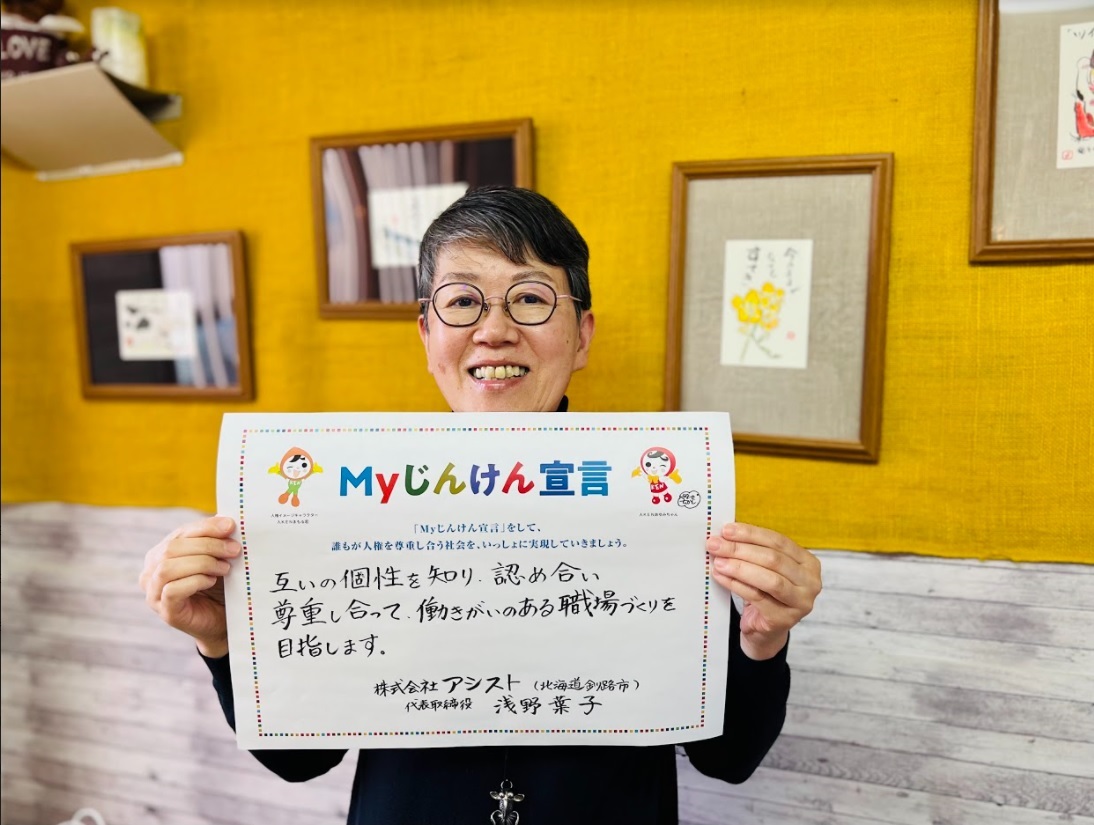 LOVE
今ゐる所
Myじんけん宣言
人権イメージキャラクター
人KENまもる君
人KENあゆみちゃん
「Myじんけん宣言」をして、
誰もが人権を尊重し合う社会を、いっしょに実現していきましょう。
互いの個性を知り、認め合い
尊重し合って、働きがいのある職場づくりを
目指します。
株式会社 アシスト (北海道釧路市)
代表取締役 浅野葉子